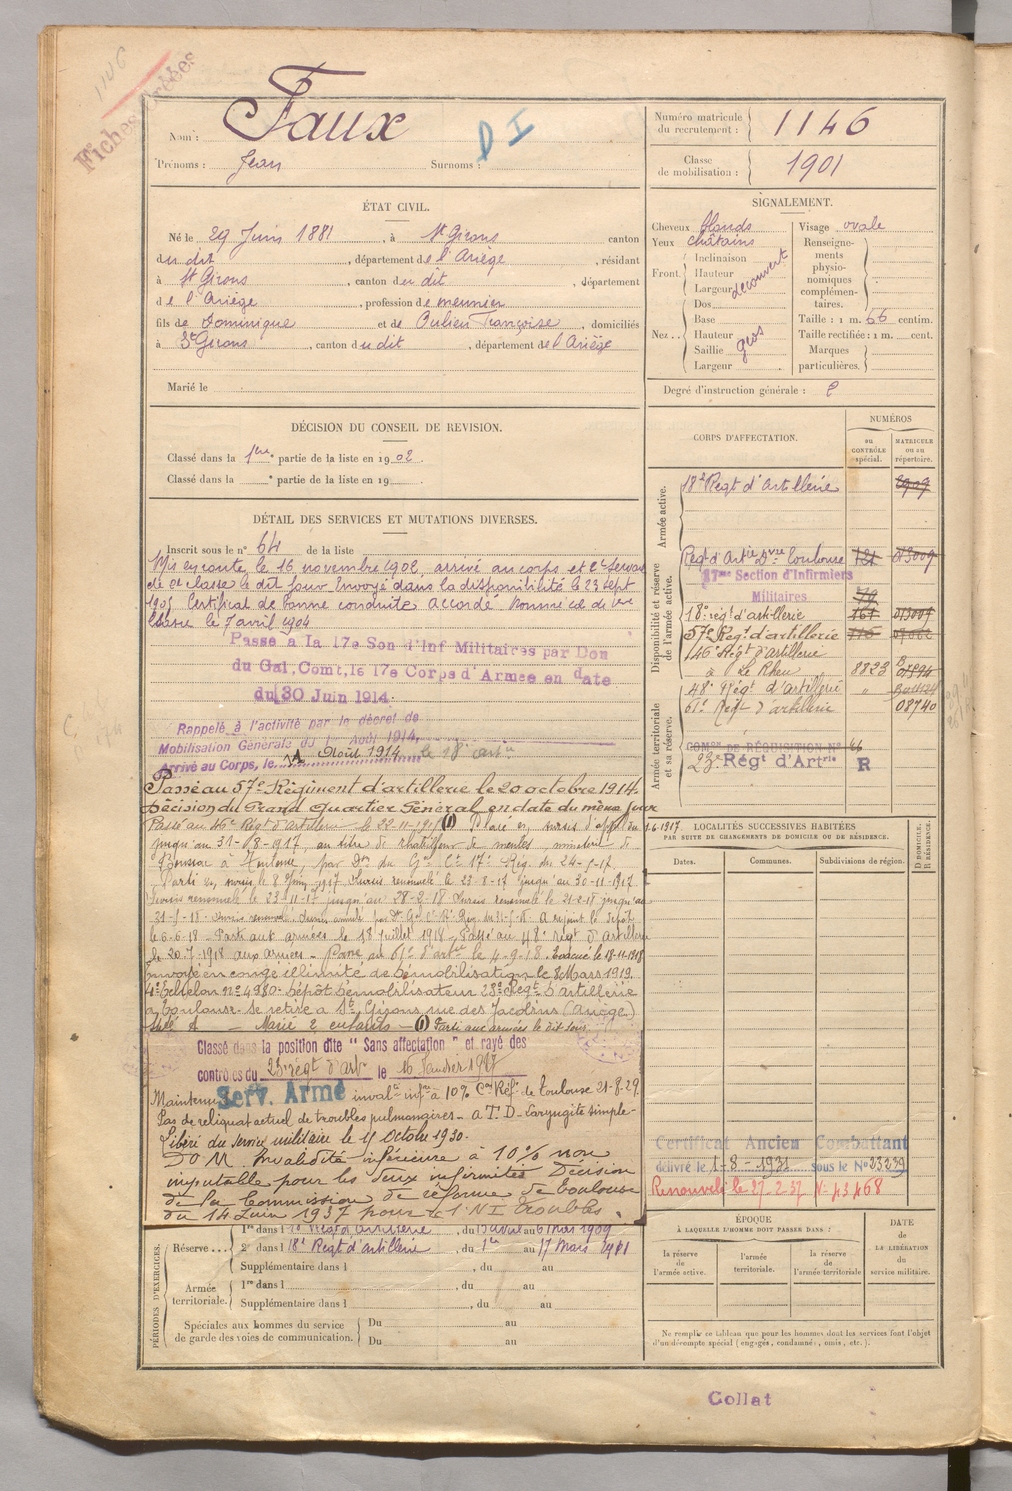 1106
Fiches créées
Nom : Faux
D I
Prénoms : Jean Surnoms :
Numéro matricule du recrutement : 1146
Classe de mobilisation : 1901
ÉTAT CIVIL.
Né le 29 Juin 1881, à St Girons canton
du dit, département de l'Ariège, résidant
à St Girons, canton du dit, département
de l'Ariège, profession de meunier
fils de Dominique et de Julien Françoise, domiciliés
à St Girons, canton du dit, département de l'Ariège
Marié le
SIGNALEMENT.
Cheveux blonds
Yeux châtains
Front. Inclinaison
Hauteur
Largeur
découvert
Nez.. Dos
Base
Hauteur
Saillie
Largeur
gros
Visage ovale
Renseignements physionomiques complémentaires.
Taille : 1 m. 66 centim.
Taille rectifiée : 1 m. cent.
Marques particulières.
Degré d'instruction générale :
DÉCISION DU CONSEIL DE REVISION.
Classé dans la 1ère partie de la liste en 1902.
Classé dans la partie de la liste en 19
DÉTAIL DES SERVICES ET MUTATIONS DIVERSES.
Inscrit sous le n° 64 de la liste
Mis en route le 16 novembre 1902, arrivé au corps et 2e Servant
de 2e classe le dit jour. Envoyé dans la disponibilité le 23 Sept
1905 Certificat de bonne conduite accordé. Nommé de 1ere
classe le 7 avril 1904
Passé a la 17e Son d'Inf Militaires par Don
du Gal. Comt. le 17e Corps d'Armée en date
du 30 Juin 1914.
Rappelé à l'activité par le décret de
Mobilisation Générale du 1er Août 1914,
Arrivé au Corps, le Août 1914 le 18e art
Passé au 57e Régiment d'artillerie le 20 octobre 1914.
Décision du Grand Quartier Général en date du même jour
Passé au 46e Régt d'artillerie le 22-11-1915 (1) Placé en sursis d'appel du 1.6.1917
jusqu'au 31-08-917, au titre de
à Toulouse, par Don du Gal Ct 17e Rég. du 24-5-17
Parti en sursis le 8 Juin 1917 Sursis renouvelé le 23-8-17 jusqu'au 30-11-1917
Sursis renouvelé le 23-11-17 jusqu'au 28-2-18 Sursis renouvelé le 21-2-18 jusqu'au
31-5-18. A rejoint le dépôt
le 6-6-18 - Parti aux armées le 18 juillet 1918 - Passé au 48e régt d'Artillerie
le 20-7-1918 aux armées - Passé au 61e d'artie le 4-9-18. Evacué le 18-11-1918
Envoyé en congé illimité de Démobilisation le 8 Mars 1919.
4e Echelon n° 4980. Dépôt Démobilisateur 23e Régt d'artillerie
à Toulouse se retire à St Girons, rue des Jacobins (Ariège)
- Marié 2 enfants - (1) Parti aux armées le dit jour
Classé dans la position dite "Sans affectation" et rayé des
contrôles du 23e régt d'art. le 16 Janvier 1927
Maintenu Serv. Armé inval. infre à 10% Con Réf. de Toulouse 21-8-29.
Pas de reliquat actuel de troubles pulmonaires - a T.D. Laryngite simple -
Libéré du service militaire le 15 Octobre 1930.
D O M. Invalidité inférieure à 10% non
imputable pour les deux infirmités Décision
de la Commission de réforme de Toulouse
du 14 Juin 1937 pour Troubles
CORPS D'AFFECTATION.
NUMÉROS
au CONTRÔLE spécial.
MATRICULE ou au répertoire.
Armée active.
18e Régt d'Artillerie 2909
Disponibilité et réserve de l'armée active.
Régt d'Artie Toulouse 121 013007
17me Section d'Infirmiers
Militaires
18e régt d'artillerie 161
57e Régt d'artillerie
46e Régt d'artillerie
Armée territoriale et sa réserve.
48e Régt d'artillerie
61e Régt d'artillerie 08740
COMon DE RÉQUISITION N° 66
23e Régt d'Artrie R
LOCALITÉS SUCCESSIVES HABITÉES
PAR SUITE DE CHANGEMENTS DE DOMICILE OU DE RÉSIDENCE.
Dates. Communes. Subdivisions de région. D DOMICILE. R RÉSIDENCE.
Certificat Ancien Combattant
délivré le 1-8-1931 sous le N° 23239
Renouvelé le 27-2-37 N° 43468
PÉRIODES D'EXERCICES.
Réserve... 1re dans l 18e Régt d'artillerie, du au 6 Mai 1909
2e dans l 18e Régt d'artillerie, du 1er au 17 Mars 1911
Supplémentaire dans l , du au
Armée territoriale. 1re dans l , du au
Supplémentaire dans l , du au
Spéciales aux hommes du service de garde des voies de communication. Du au
Du au
ÉPOQUE
À LAQUELLE L'HOMME DOIT PASSER DANS :
la réserve de l'armée active.
l'armée territoriale.
la réserve de l'armée territoriale
DATE DE LA LIBÉRATION du service militaire.
Ne remplir ce tableau que pour les hommes dont les services font l'objet
d'un décompte spécial (engagés, condamnés, omis, etc.).
Collat